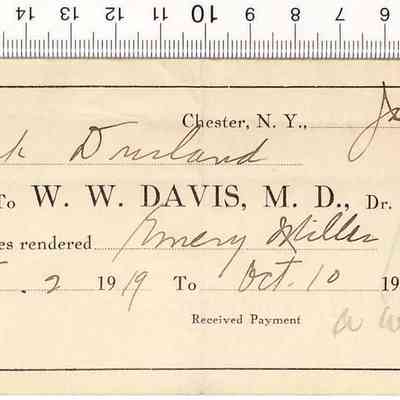 14 13 12 11 10 9 8 7 6
Chester, N. Y.,
k Durland
To W. W. DAVIS, M. D., Dr.
es rendered Emery Miller
. 2 1919 To Oct. 10 19
Received Payment